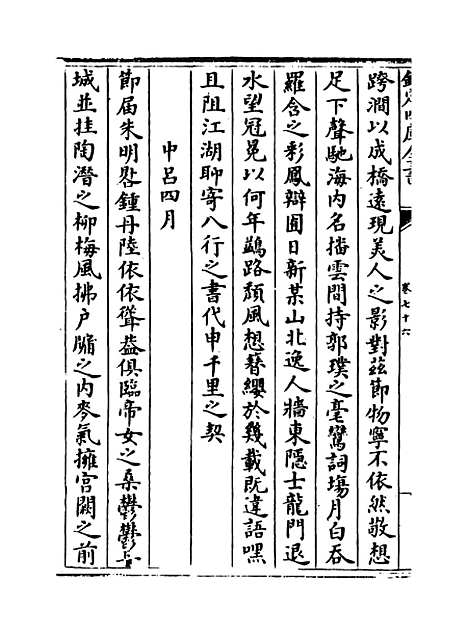 欽定四庫全書
卷七十六
跨澗以成橋遠現美人之影對茲節物寧不依然敬想
足下聲馳海内名播雲間持郭璞之毫鸞詞塲月白吞
羅含之彩鳳辯囿日新某山北逸人牆東隱士龍門退
水望冠冕以何年鷁路頽風想簪纓於幾載既違語嘿
且阻江湖聊寄八行之書代申千里之契
中吕四月
節届朱明晷鍾丹陸依依聳葢俱臨帝女之桑鬱鬱
城並挂陶潛之柳梅風拂户牖之内麥氣擁宫闕之前